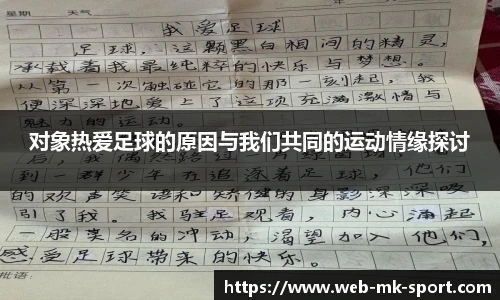 星期 天气 年 月 日
我爱足球
足球，这颗黑白相间的精灵，
承载着我最纯粹的快乐与梦想。
从第一次触碰它的那一刻起，我
便深深地爱上了这项充满激情与
魅力的运动。
对象热爱足球的原因与我们共同的运动情缘探讨
到一群少年在追逐着足球，他们
的欢声笑语和矫健的身影深深吸
引了我。我驻足观看，内心涌起
一股莫名的冲动，渴望加入他们，
感受足球带来的快乐。
批语：
https://www-web-mk-sport.com